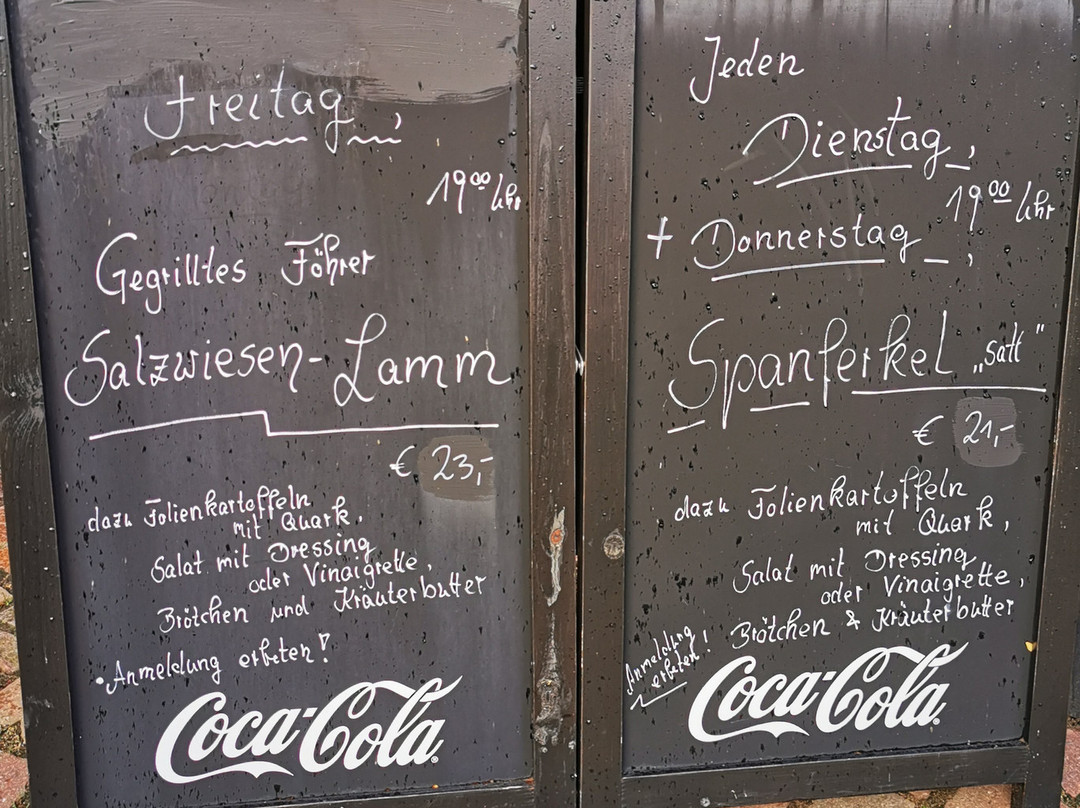 Freitag,
19⁰⁰ Uhr
Gegrilltes Föhrer
Salzwiesen-Lamm
€ 23,-
dazu Folienkartoffeln
mit Quark,
Salat mit Dressing
oder Vinaigrette,
Brötchen und Kräuterbutter
• Anmeldung erbeten!
Coca-Cola®
Jeden
Dienstag,
19⁰⁰ Uhr
+ Donnerstag,
Spanferkel „satt“
€ 21,-
dazu Folienkartoffeln
mit Quark,
Salat mit Dressing
oder Vinaigrette,
Brötchen & Kräuterbutter
Anmeldung
erbeten!
Coca-Cola®